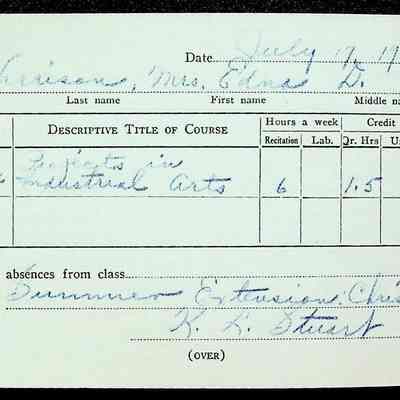 Date July 17, 19
rrison, Mrs. Edna D.
Last name First name Middle na
Hours a week Credit
DESCRIPTIVE TITLE OF COURSE Recitation Lab. Qr. Hrs U
Projects in
Industrial Arts 6 1.5
absences from class
Summer Extension, Chris
K. L. Stuart
(OVER)